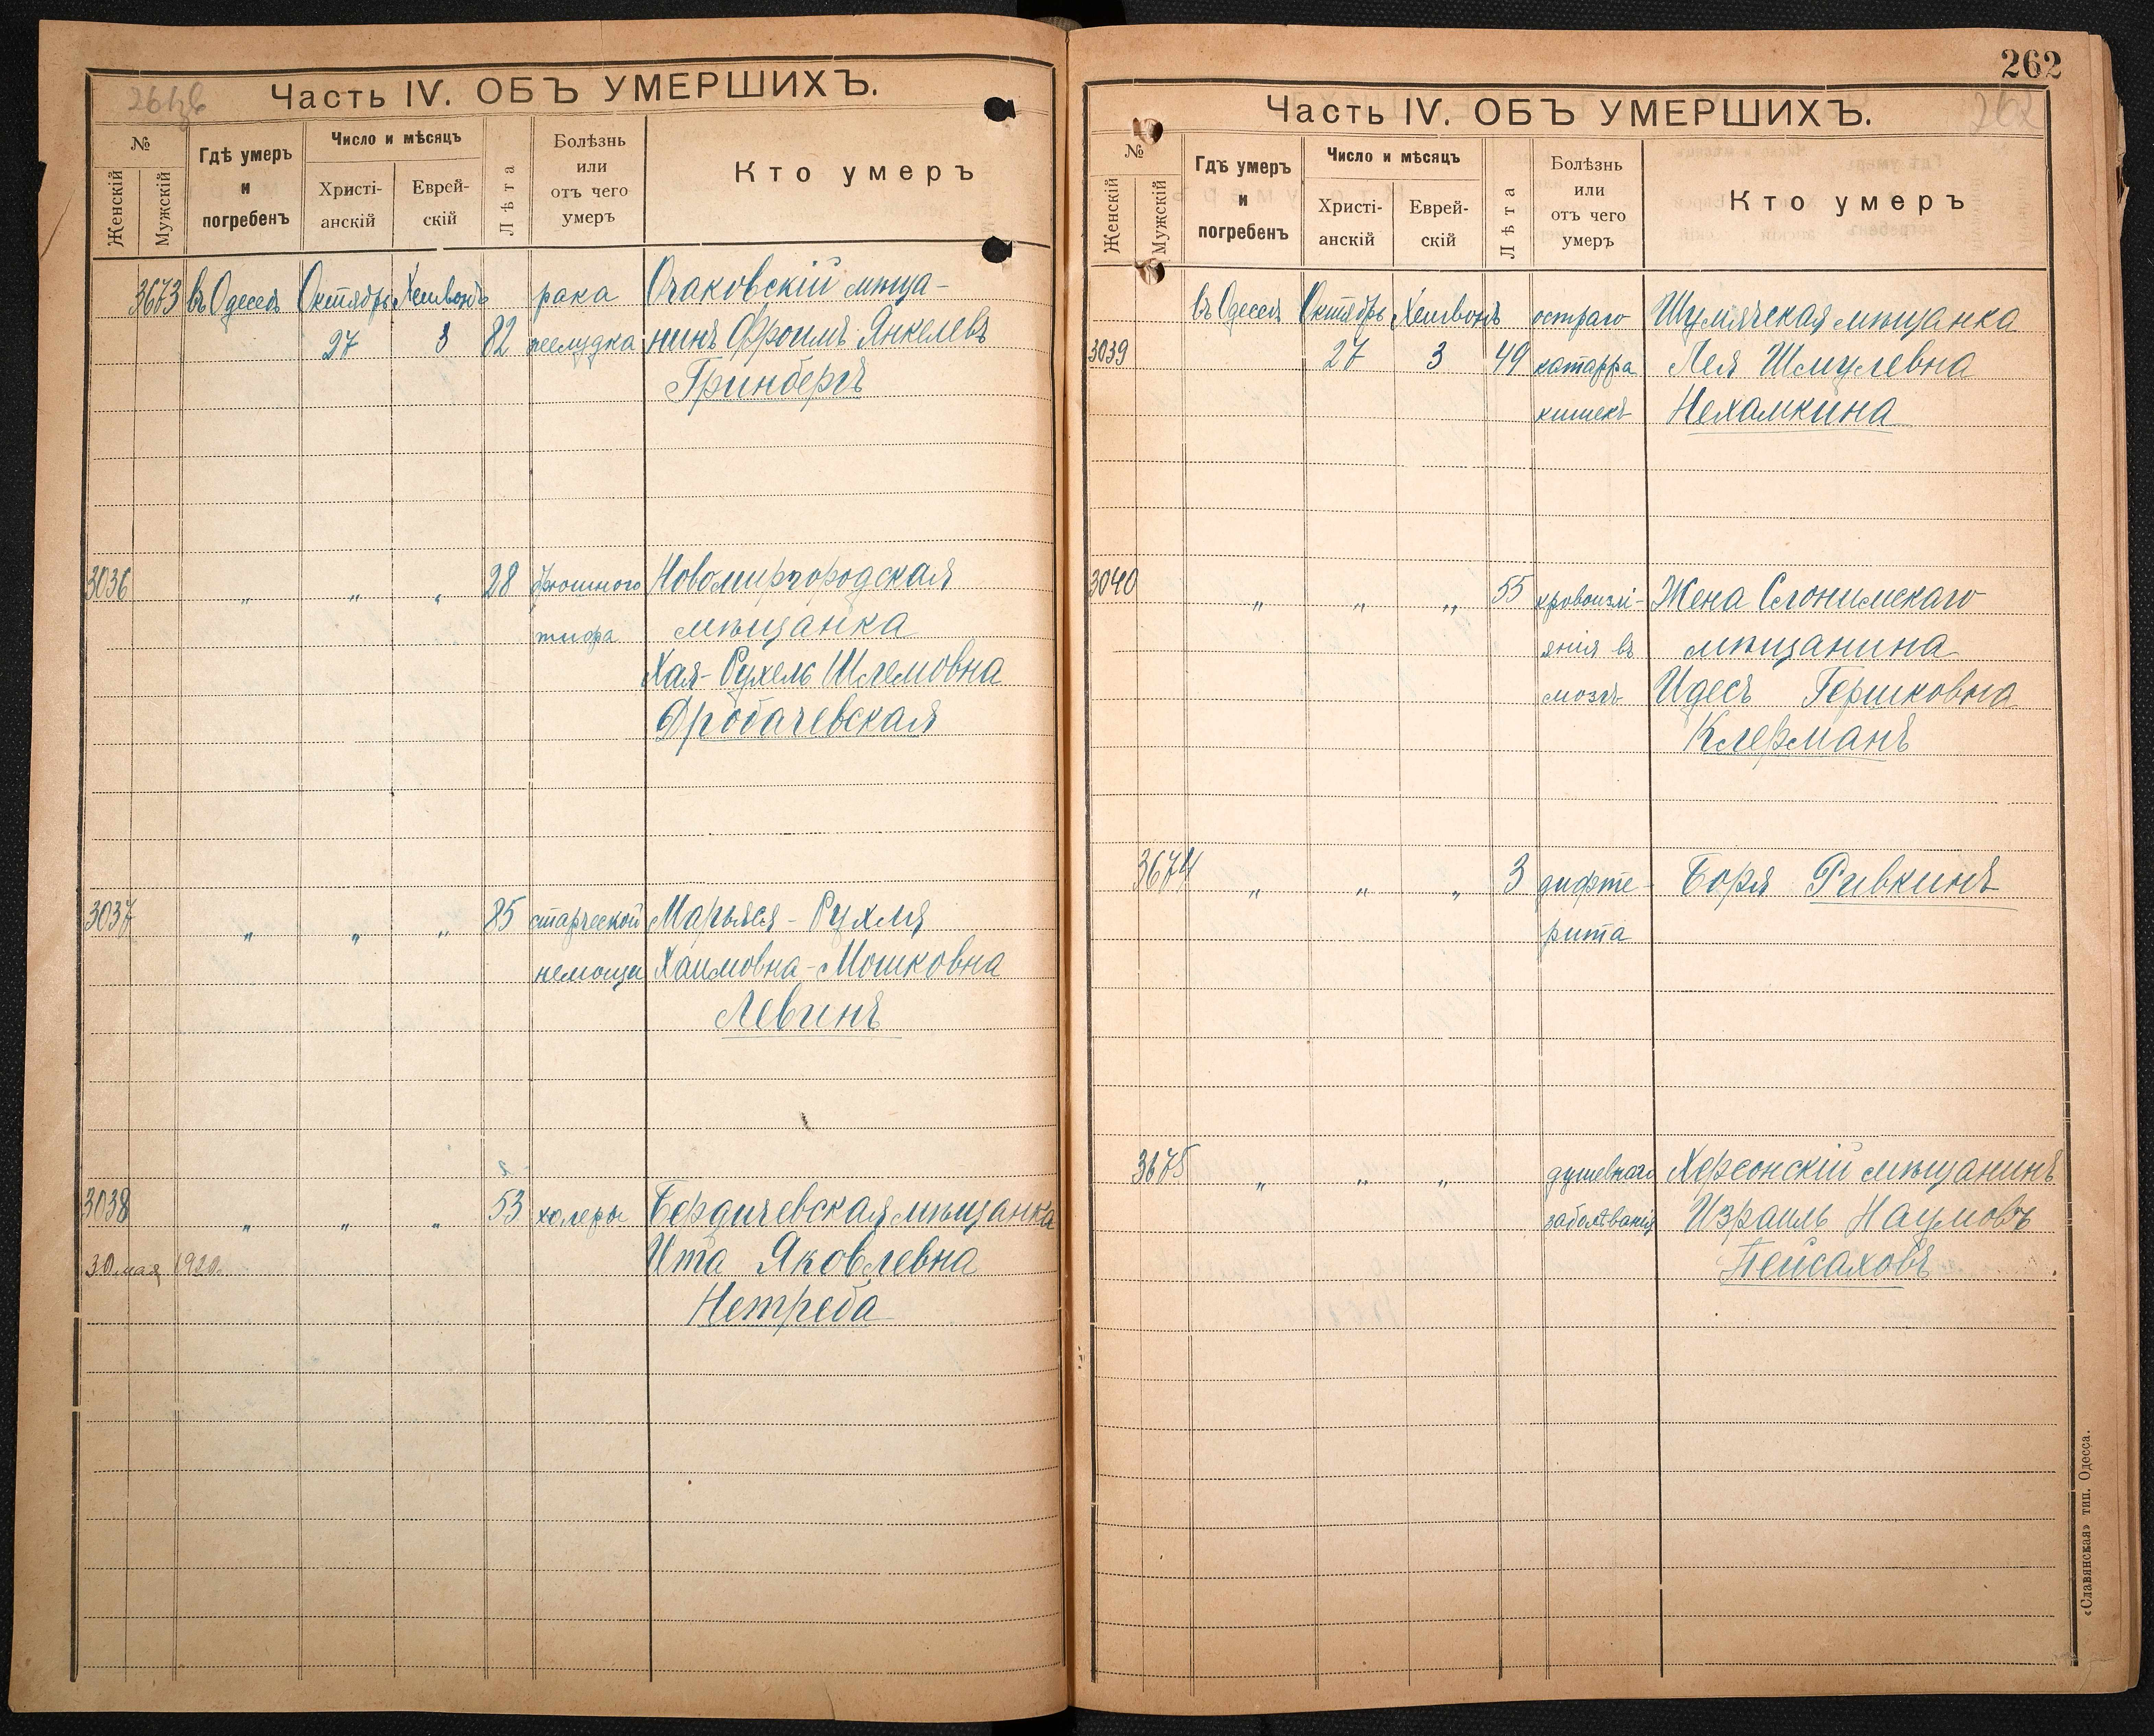 Часть IV. ОБЪ УМЕРШИХЪ.
№
Женскій
Мужскій
Гдѣ умеръ
и
погребенъ
Число и мѣсяцъ
Христі-
анскій
Еврей-
скій
Лѣта
Болѣзнь
или
отъ чего
умеръ
Кто умеръ
3673 въ Одессѣ Октябрь Хешвонъ рака Очаковскій мѣща-
27 3 82 желудка нинъ Фроимъ Янкелевъ
Гринбергъ
3036 „ „ „ 28 брюшного Новомиргородская
тифа мѣщанка
Хая-Рухель Шлемовна
Дробачевская
3037 „ „ „ 85 старческой Марьяся-Рухля
немощи Хаимовна-Мошковна
Левинъ
3038 „ „ „ 53 холеры Бердичевская мѣщанка
30 мая 1920. Ита Яковлевна
Нетреба
262
262
Часть IV. ОБЪ УМЕРШИХЪ.
№
Женскій
Мужскій
Гдѣ умеръ
и
погребенъ
Число и мѣсяцъ
Христі-
анскій
Еврей-
скій
Лѣта
Болѣзнь
или
отъ чего
умеръ
Кто умеръ
въ Одессѣ Октябрь Хешвонъ остраго Шумячская мѣщанка
3039 27 3 49 катарра Лея Шмулевна
кишекъ Нехамкина
3040 „ „ „ 55 кровоизлі- Жена Слонимскаго
янія въ мѣщанина
мозгъ Идесъ Гершковна
Клерманъ
3674 „ „ „ 3 дифте- Боря Ривкинъ
рита
3675 „ „ „ душевнаго Херсонскій мѣщанинъ
заболѣванія Израиль Наумовъ
Пейсаховъ
«Славянская» тип. Одесса.